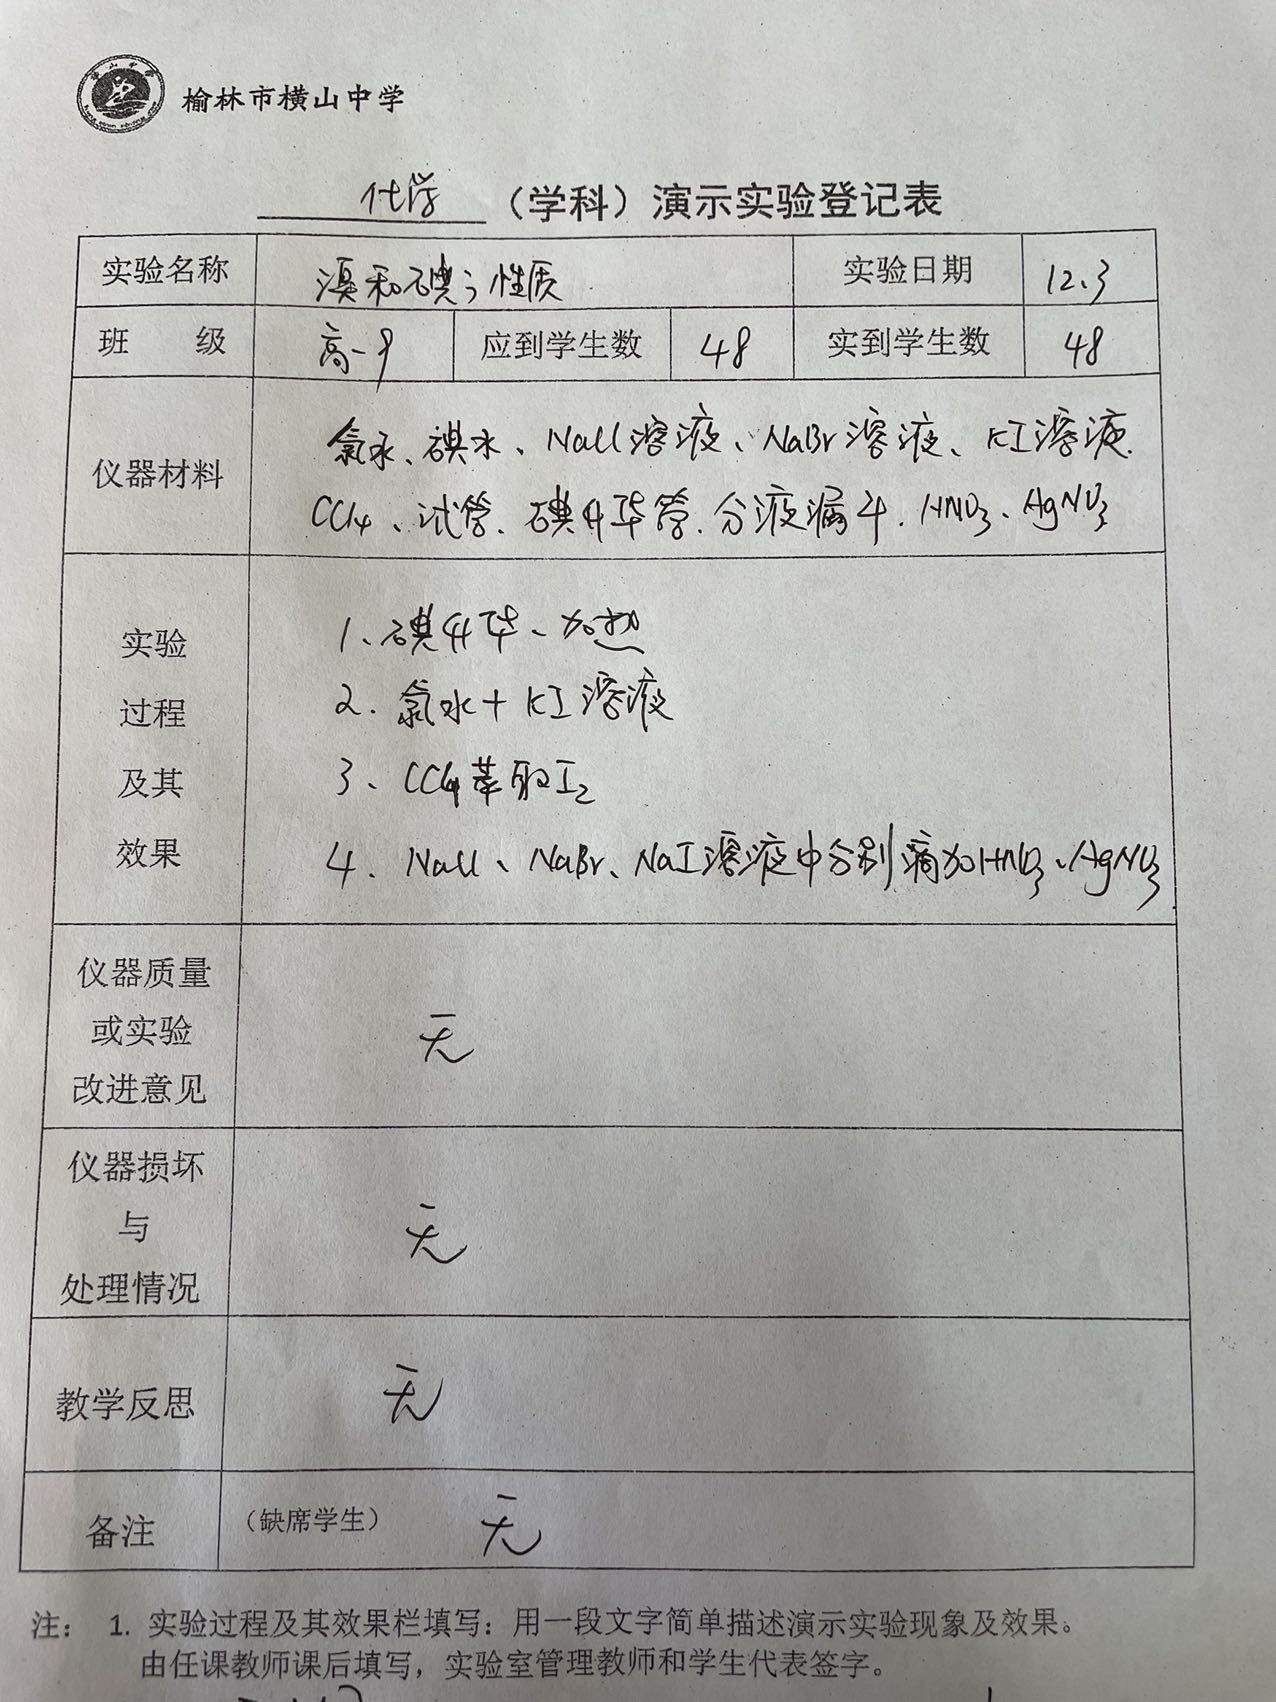 榆林市横山中学
化学（学科）演示实验登记表
实验名称 溴和碘的性质 实验日期 12.3
班 级 高一9 应到学生数 48 实到学生数 48
仪器材料
氯水、碘水、NaCl溶液、NaBr溶液、KI溶液.
CCl4、试管.碘升华管.分液漏斗.HNO3、AgNO3
实验
过程
及其
效果
1、碘升华、加热
2.氯水+KI溶液
3、CCl4萃取I2
4.NaCl、NaBr、NaI溶液中分别滴加HNO3、AgNO3
仪器质量
或实验
改进意见
无
仪器损坏
与
处理情况
无
教学反思 无
备注 （缺席学生） 无
注： 1. 实验过程及其效果栏填写：用一段文字简单描述演示实验现象及效果。
由任课教师课后填写，实验室管理教师和学生代表签字。